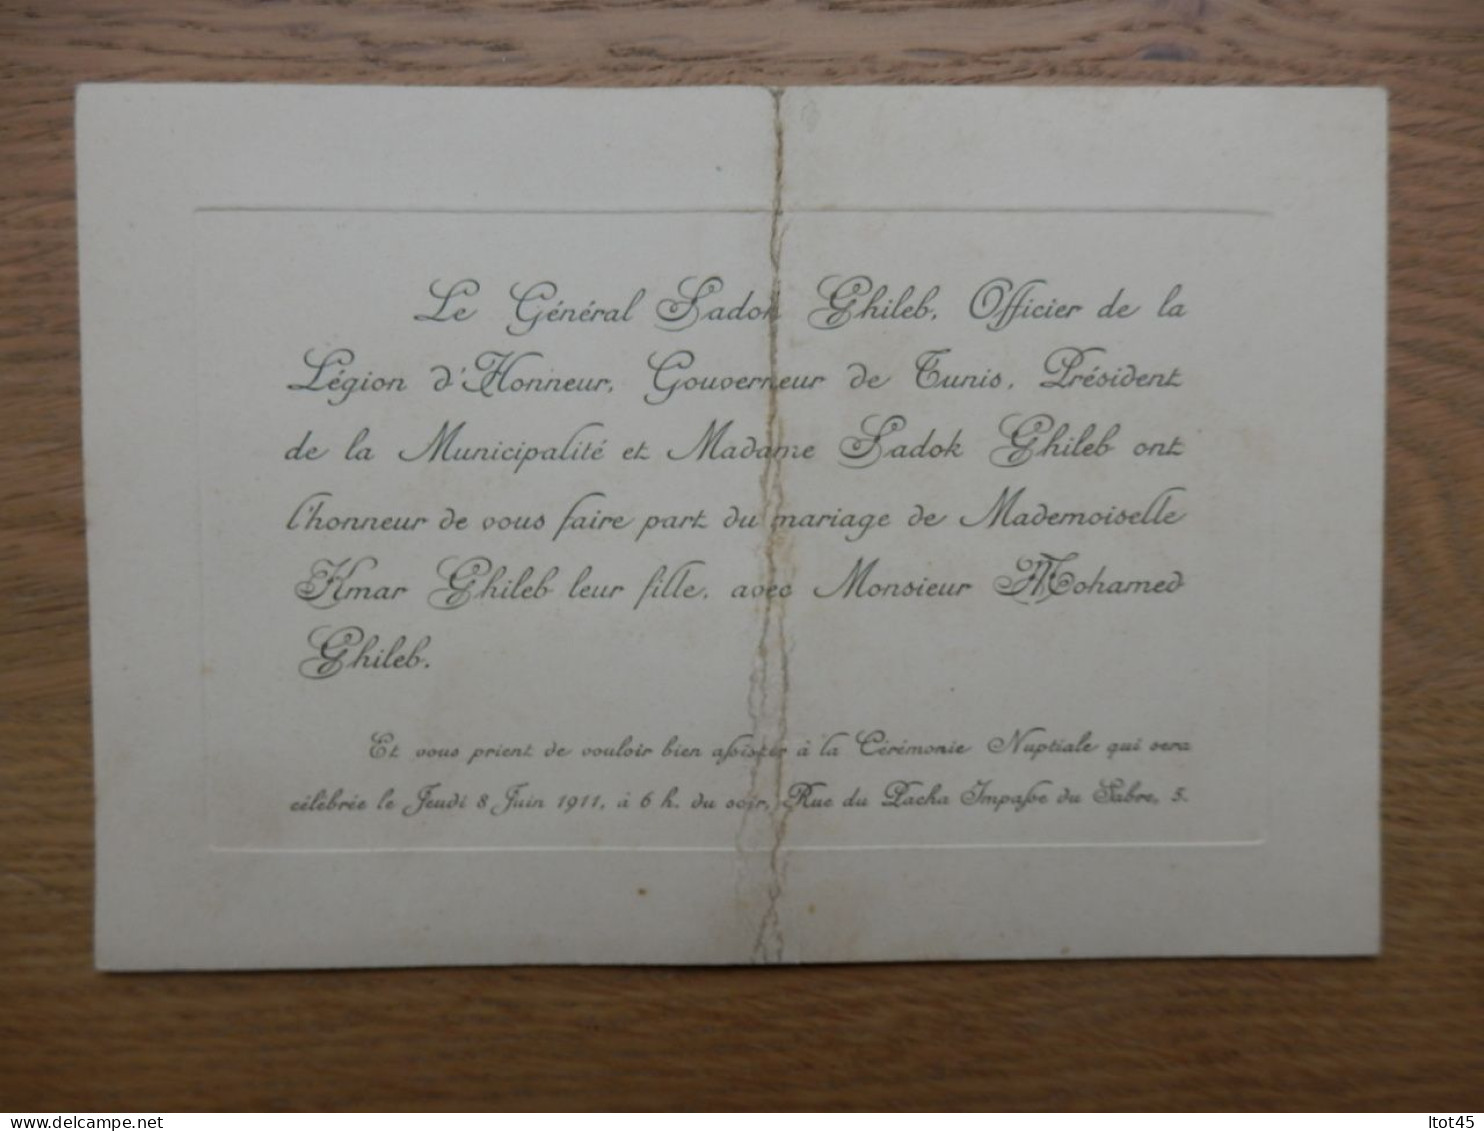 Le Général Sadok Ghileb, Officier de la
Légion d'Honneur, Gouverneur de Tunis, Président
de la Municipalité et Madame Sadok Ghileb ont
l'honneur de vous faire part du mariage de Mademoiselle
Kmar Ghileb leur fille, avec Monsieur Mohamed
Ghileb.
Et vous prient de vouloir bien assister à la Cérémonie Nuptiale qui sera
célébrée le Jeudi 8 Juin 1911, à 6 h. du soir, Rue du Pacha Impasse du Sabre, 5.
delcampe.net
ltot45